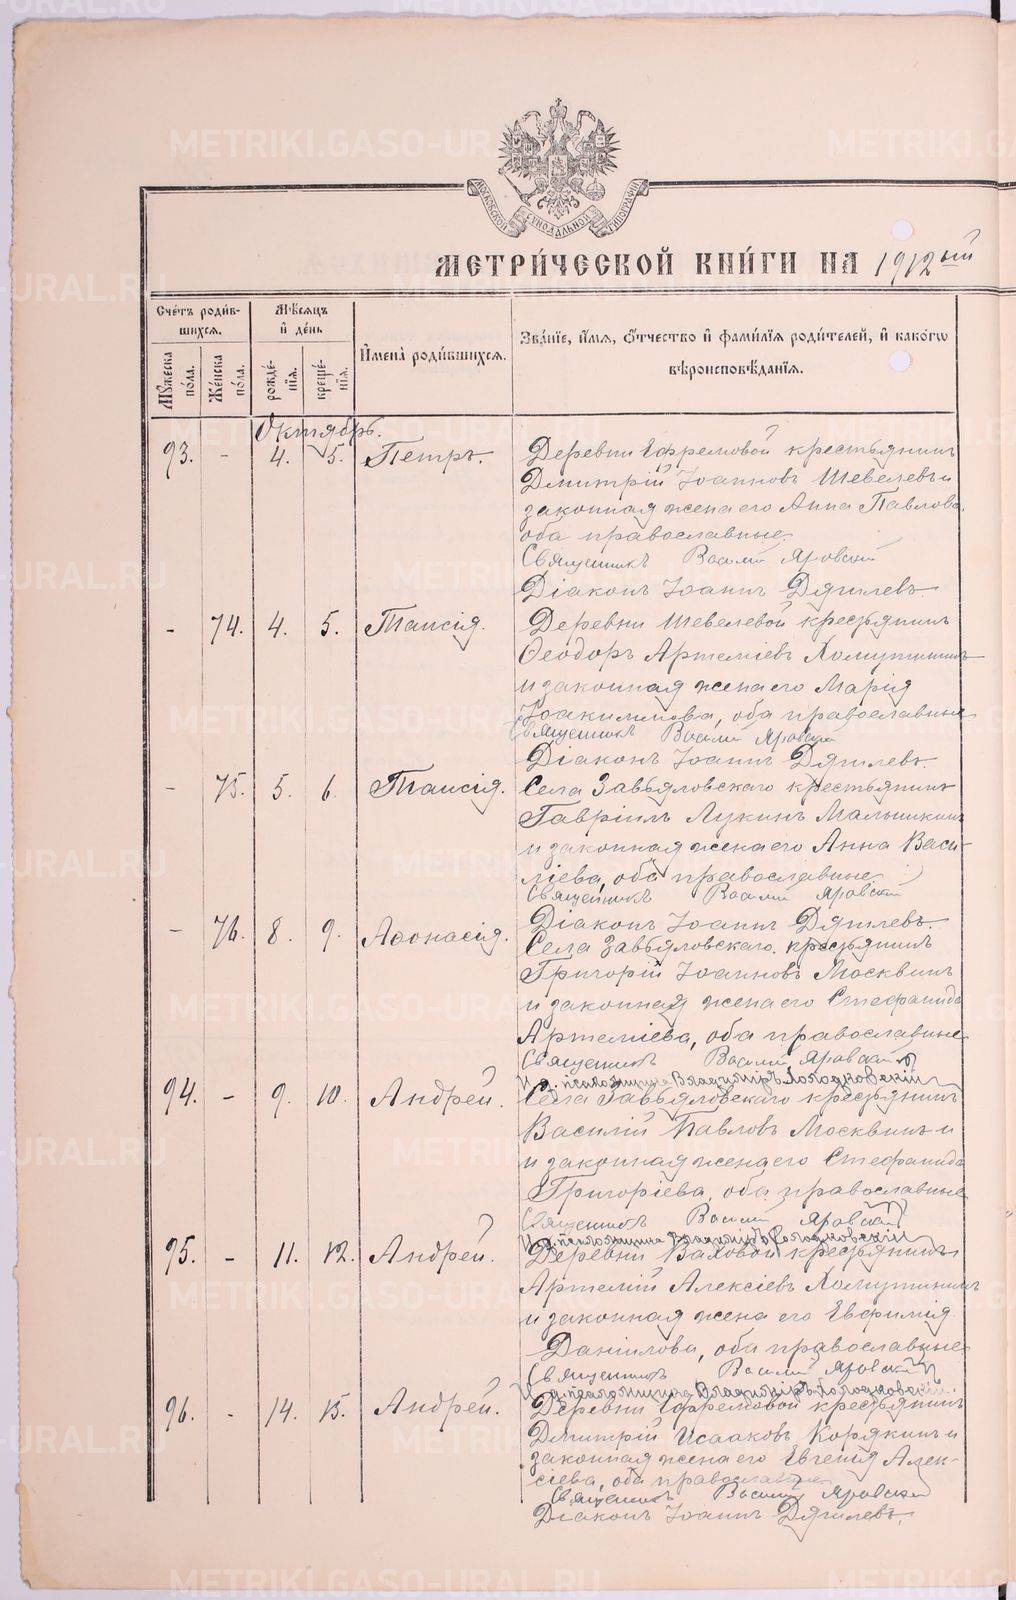 МОСКОВСКОЙ СѴНОДАЛЬНОЙ ТИПОГРАФІИ
МЕТРИ́ЧЕСКОЙ КНИ́ГИ НА 1912ый
Сче́тъ роди́в-
шихся.
Мѣ́сяцъ
и҆ де́нь
И҆мена̀ роди́вшихся.
Зва́нїе, и҆́мя, ѻ҆́тчество и҆ фами́лїя роди́телей, и҆ како́гѡ
вѣроисповѣ́данїя.
Мꙋ́жеска
по́ла.
Же́нска
по́ла.
рожде́-
нїя.
креще́-
нїя.
Октябрь.
93. - 4. 5. Петръ. Деревни Ефремовой крестьянинъ
Дмитрій Іоанновъ Шевелевъ и
законная жена его Анна Павлова,
оба православные.
Священникъ Василій Яровскій
Діаконъ Іоаннъ Дягилевъ.
- 74. 4. 5. Таисія. Деревни Шевелевой крестьянинъ
Ѳеодоръ Артеміевъ Хомутининъ
и законная жена его Марія
Іоакимова, оба православные
Священникъ Василій Яровскій
Діаконъ Іоаннъ Дягилевъ.
- 75. 5. 6. Таисія. Села Завьяловскаго крестьянинъ
Гавріилъ Лукинъ Мальшикинъ
и законная жена его Анна Васи-
ліева, оба православные
Священникъ Василій Яровскій
Діаконъ Іоаннъ Дягилевъ.
- 76. 8. 9. Аѳонасія. Села Завьяловскаго крестьянинъ
Григорій Іоанновъ Москвинъ
и законная жена его Стефанида
Артеміева, оба православные
Священникъ Василій Яровскій
И. д. псаломщика Владиміръ Холодковскій
94. - 9. 10. Андрей. Села Завьяловскаго крестьянинъ
Василій Павловъ Москвинъ и
и законная жена его Стефанида
Григоріева, оба православные
Священникъ Василій Яровскій
И. д. псаломщика Владиміръ Холодковскій
95. - 11. 12. Андрей. Деревни Ваховой крестьянинъ
Артемій Алексіевъ Хомутининъ
и законная жена его Евфимія
Даніилова, оба православные
Священникъ Василій Яровскій
И. д. псаломщика Владиміръ Холодковскій.
96. - 14. 15. Андрей. Деревни Ефремовой крестьянинъ
Дмитрій Исааковъ Корякинъ и
законная жена его Евгенія Алек-
сіева, оба православные
Священникъ Василій Яровскій
Діаконъ Іоаннъ Дягилевъ.
METRIKI.GASO-URAL.RU